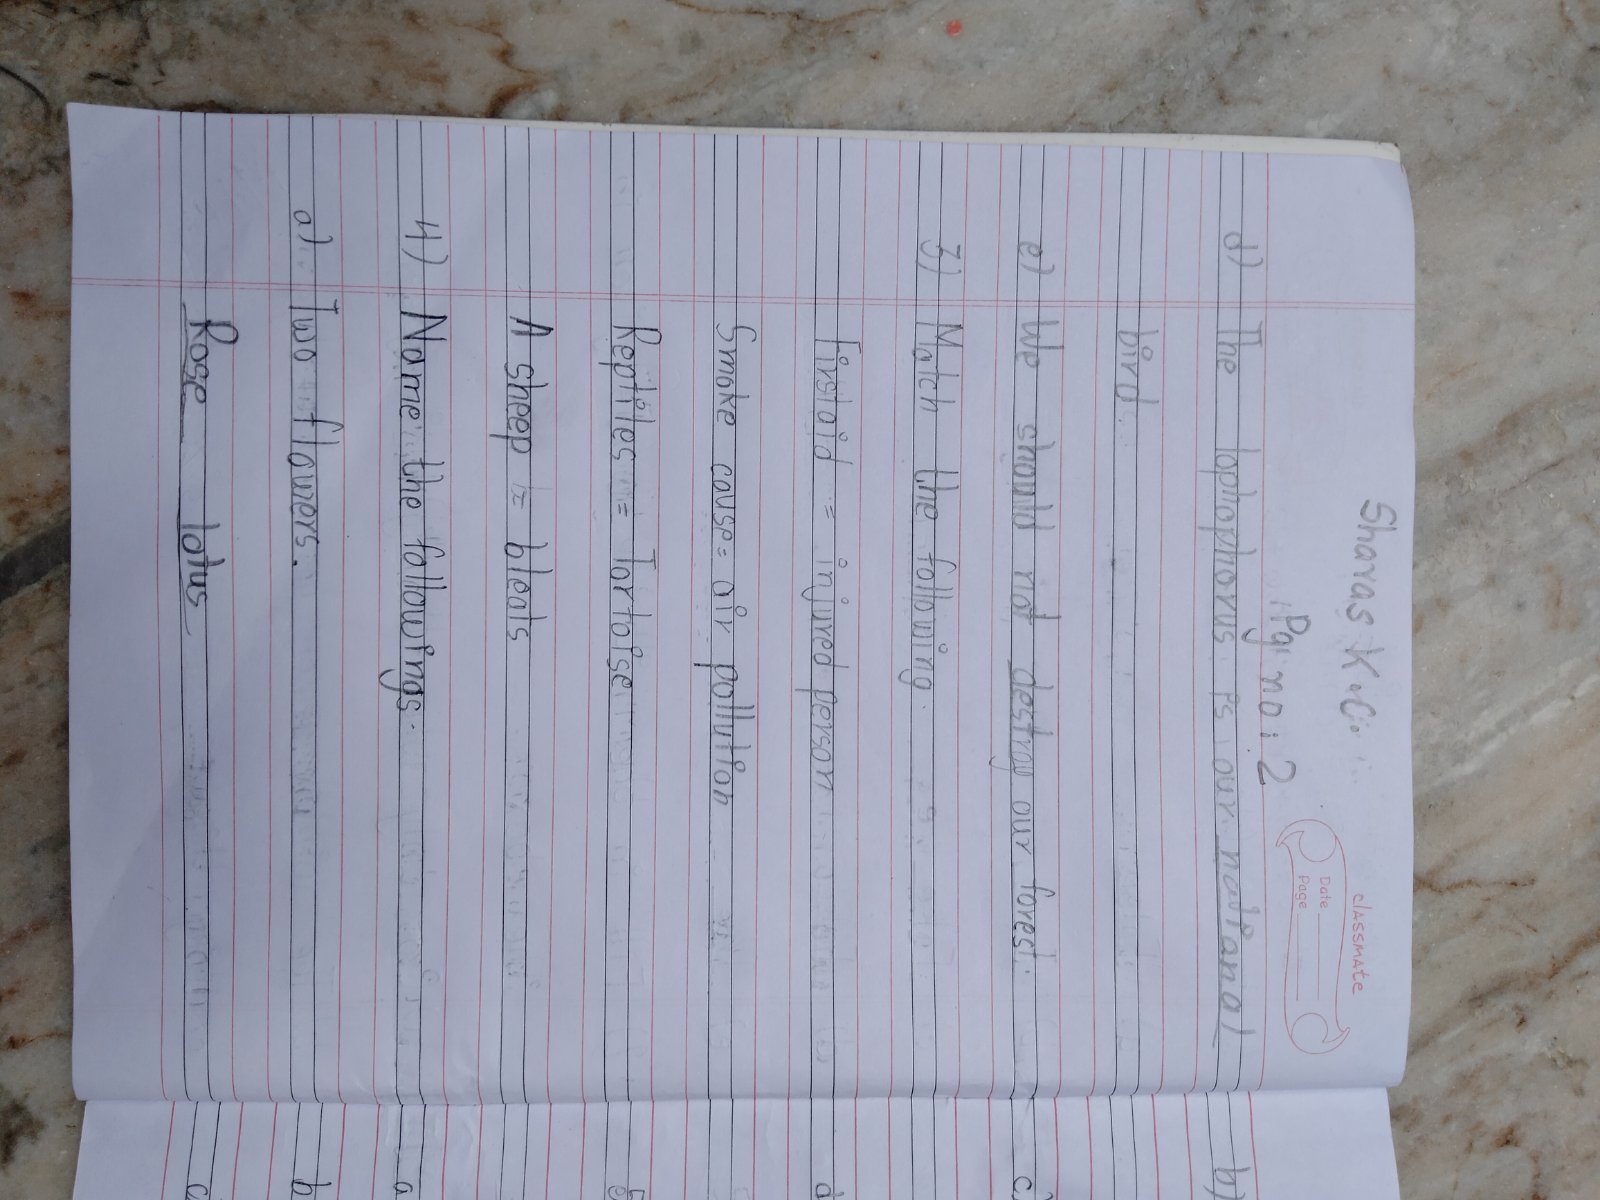 Sharas K.C.
Pg no: 2
classmate
Date
Page
d) The lophophorus is our national
bird.
e) We should not destroy our forest.
3) Match the following.
Firstaid = injured person
Smoke cause = air pollution
Reptiles = Tortoise
A sheep = bleats
4) Name the followings.
a) Two flowers.
Rose lotus
b)
c)
d
a
b